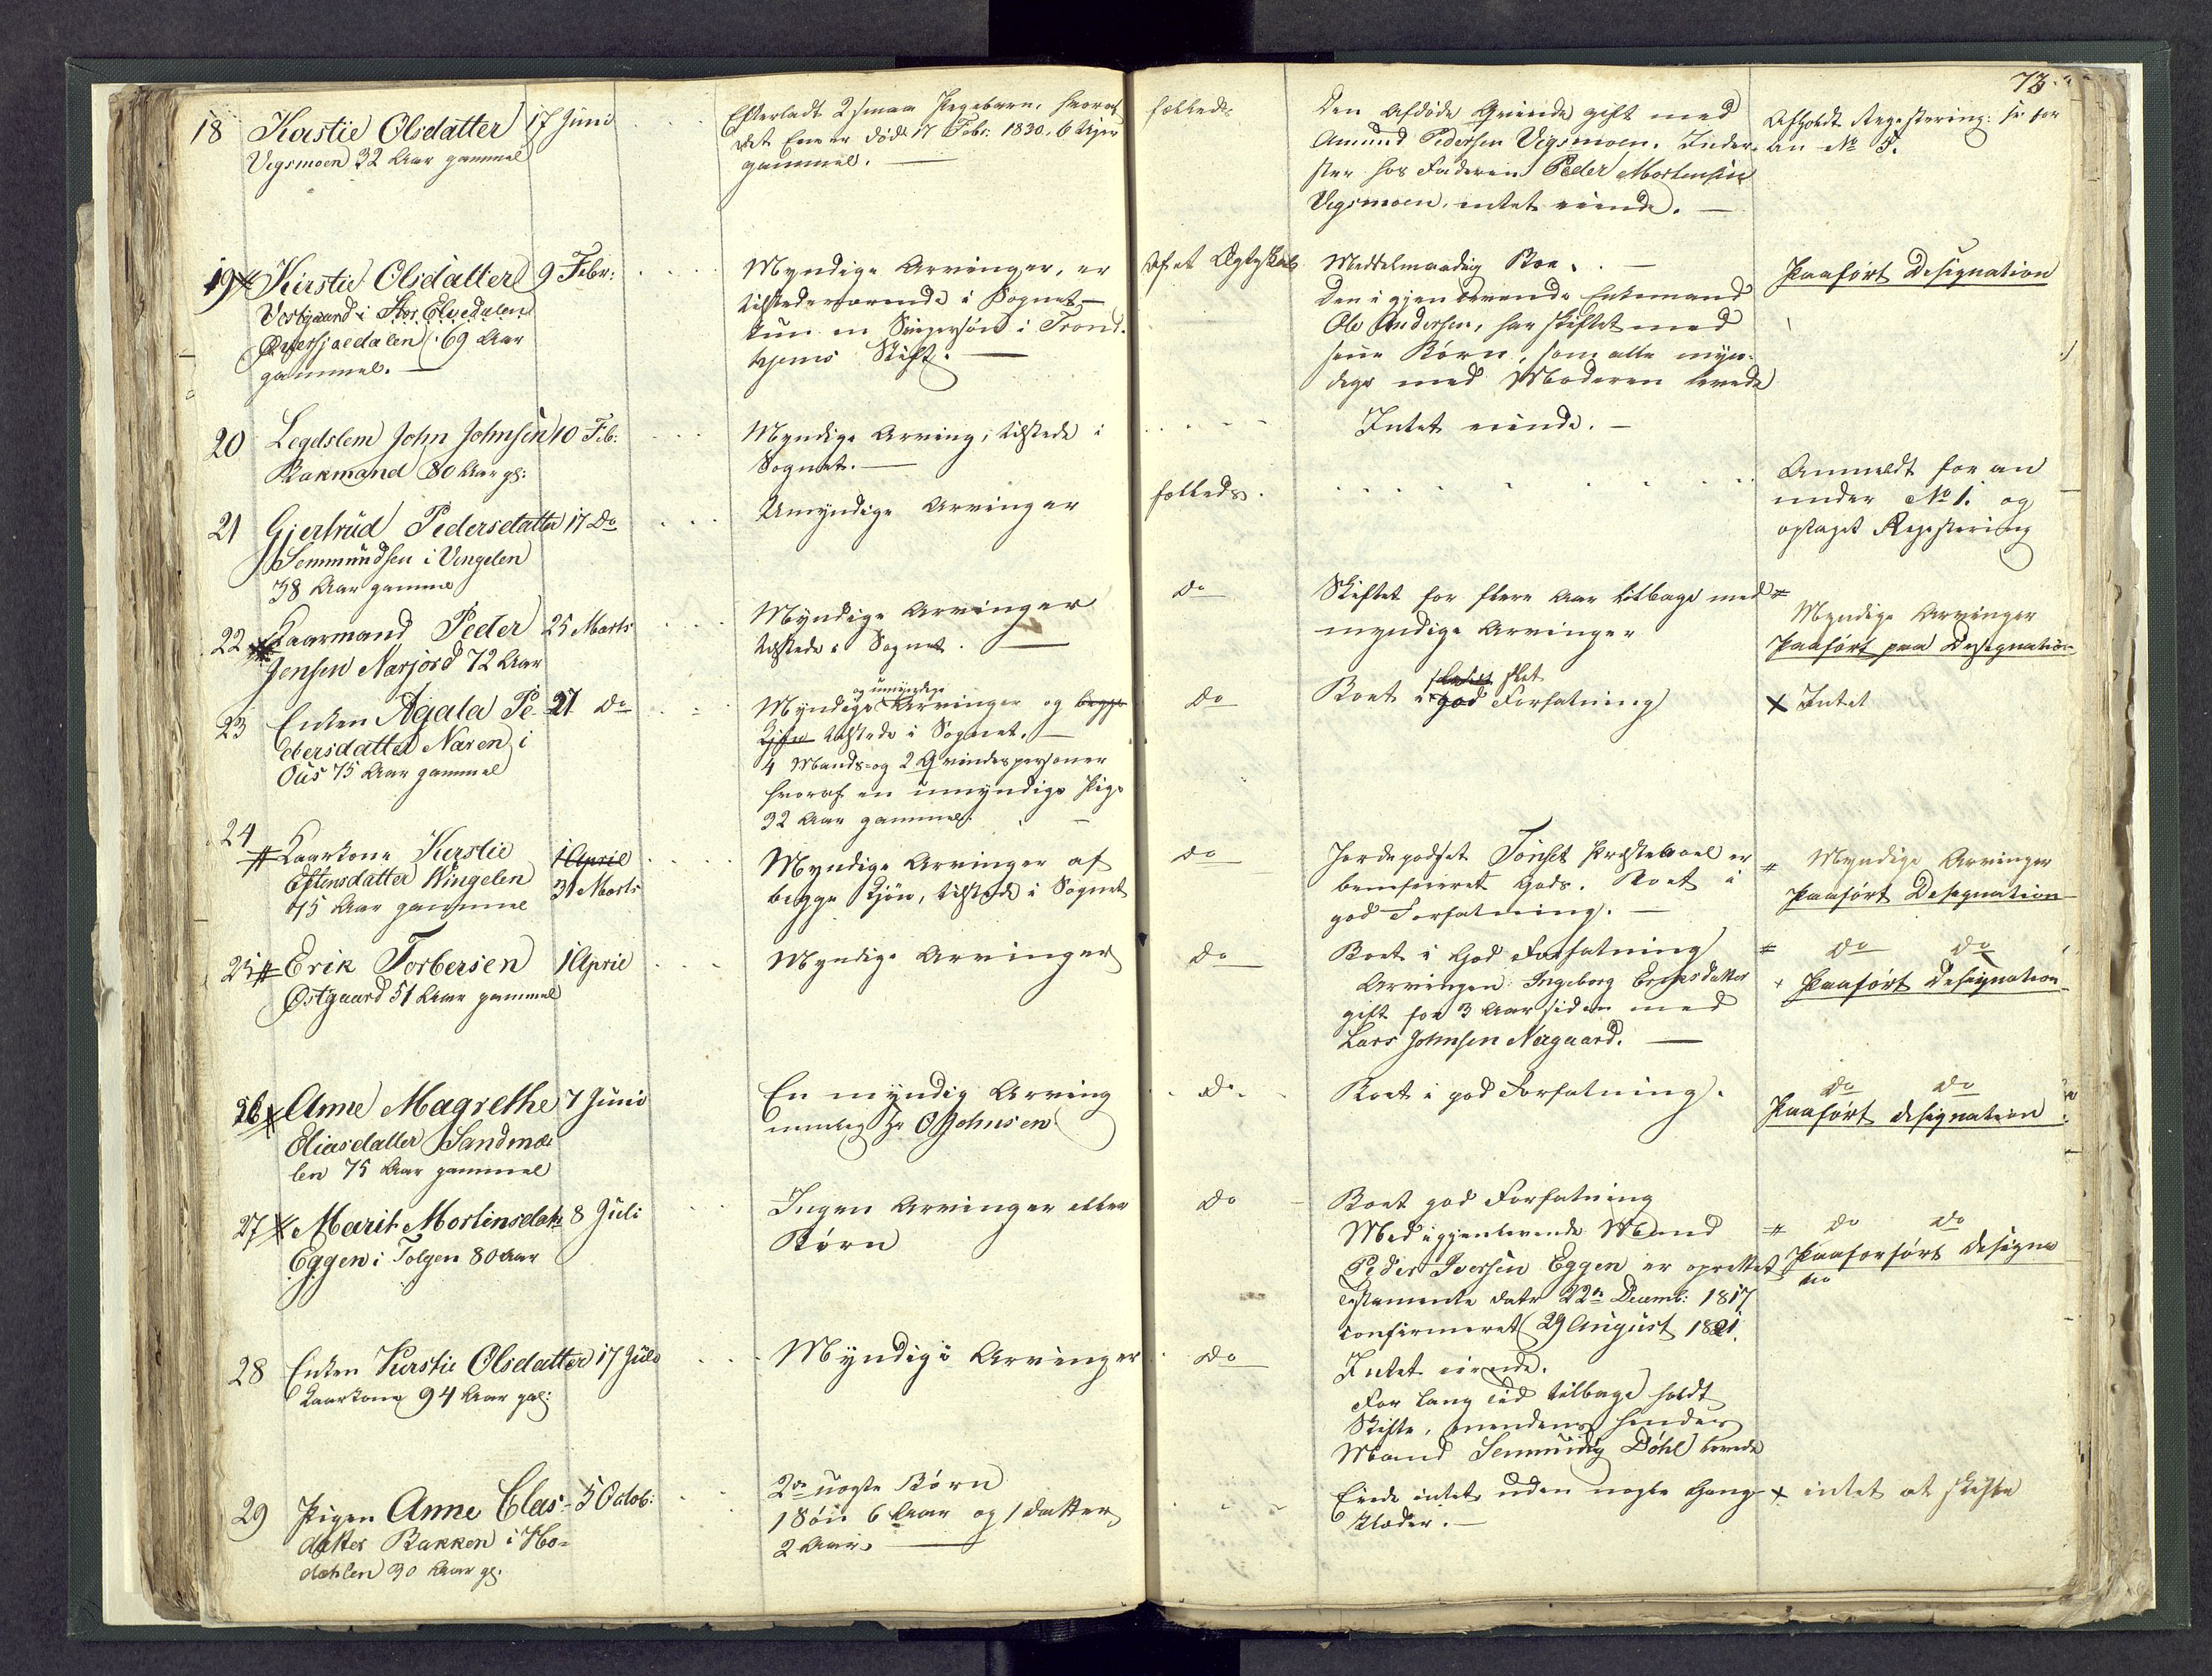 73.
18 Kerstie Olsdatter 17 Juni
Vegsmoen 32 Aar gammel
Efterladt 2 smaa Pigebørn, hvoraf
det Ene er død 17 Febr. 1830. 6 Uger
gammel. —
fælleds
Den Afdøde Qvinde gift med
Amund Pedersen Vegsmoen. Inder-
ster hos Faderen Peder Mortensen
Vegsmoen. intet eiende. —
Afholdt Registering: se for
an No 5.
19 Kirstie Olsdatter 9 Febr:
Vestgaard i Stor Elvedalen
Øversjoedalen 69 Aar
gammel. —
Myndige Arvinger, er
tilstedeværende i Sognet —
kun en Søn i Trond-
hjems Stift. —
Middelmaadig Boe. —
Den igjenlevende Enkemand
Ole Andersen, har skiftet med
sine Børn, som alle myn-
dige med Moderen levede
Paaført Designation
20 Legdslem John Johnsen 10 Feb:
Bakmand 80 Aar gl:
Myndige Arving, tilstede i
Sognet. —
Intet eiende. —
21 Gjertrud Pedersdatter 17 Do
Semmundsen i Vingelen
38 Aar gammel
Umyndige Arvinger
fælleds.
Anmeldt for an
under No 1. og
optaget Registering
22 Kaarmand Peder 25 Marts
Jensen Narjord 72 Aar
Myndige Arvinger
tilstede i Sognet. —
Do
Skiftet for flere Aar tilbage med
myndige Arvinger
Myndige Arvinger
Paaført paa Designation
23 Enken Agata Pe- 27 Do
dersdatter Naren i
Øus 75 Aar gammel
og umyndige
Myndige Arvinger og begge
Kjøn tilstede i Sognet. —
4 Mands- og 2 Qvindespersoner
hvoraf en umyndige Pige
32 Aar gammel.
Do
slet
Boet i god Forfatning
x Intet
24 # Kaarkone Kirstie 1 April
Estensdatter Vingelen 31 Marts
75 Aar gammel
Myndige Arvinger af
begge Kjøn, tilstede i Sognet
Do
Jordegodset Tønset Præsteboel er
beneficeret Gods. Boet i
god Forfatning. —
# Myndige Arvinger
Paaført Designation
25 # Erik Torbersen 1 April
Østgaard 51 Aar gammel
Myndige Arvinger
Do
Boet i God Forfatning
Arvingen Ingeborg Ericsdatter
gift for 3 Aar siden med
Lars Johnsen Nergaard. —
# Do Do
Paaført Designation
26 Anne Magrethe 7 Juni
Eliasdatter Sandmæ
len 75 Aar gammel
En myndig Arving
nemlig Hr O Johnsen
Do
Boet i god Forfatning.
Do Do
Paaført designation
27 # Marit Mortensdatr 8 Juli
Eggen i Tolgen 80 Aar
Ingen Arvinger eller
Børn
Do
Boet god Forfatning
Med igjenlevende Mand
Peder Iversen Eggen er oprettet
Testamente datr 22de Decemb: 1817
confirmeret 29 August 1821.
# Do Do
Paaforført designa
tio
28 Enken Kirstie Olsdatter 17 Juli
Kaarkone 94 Aar gal:
Myndige Arvinger
Do
Intet eiende.
For lang tid tilbage holdt
Skifte, medens hendes
Mand Semmindg Döhl levede
29 Pigen Anne Clas- 5 Octob:
datter Bakken i Ho-
dahlen 30 Aar gl.
2de uægte Børn
1 Søn 6 Aar og 1 datter
2 Aar. —
Eiede intet uden nogle Gang-
klæder. —
x intet at skifte